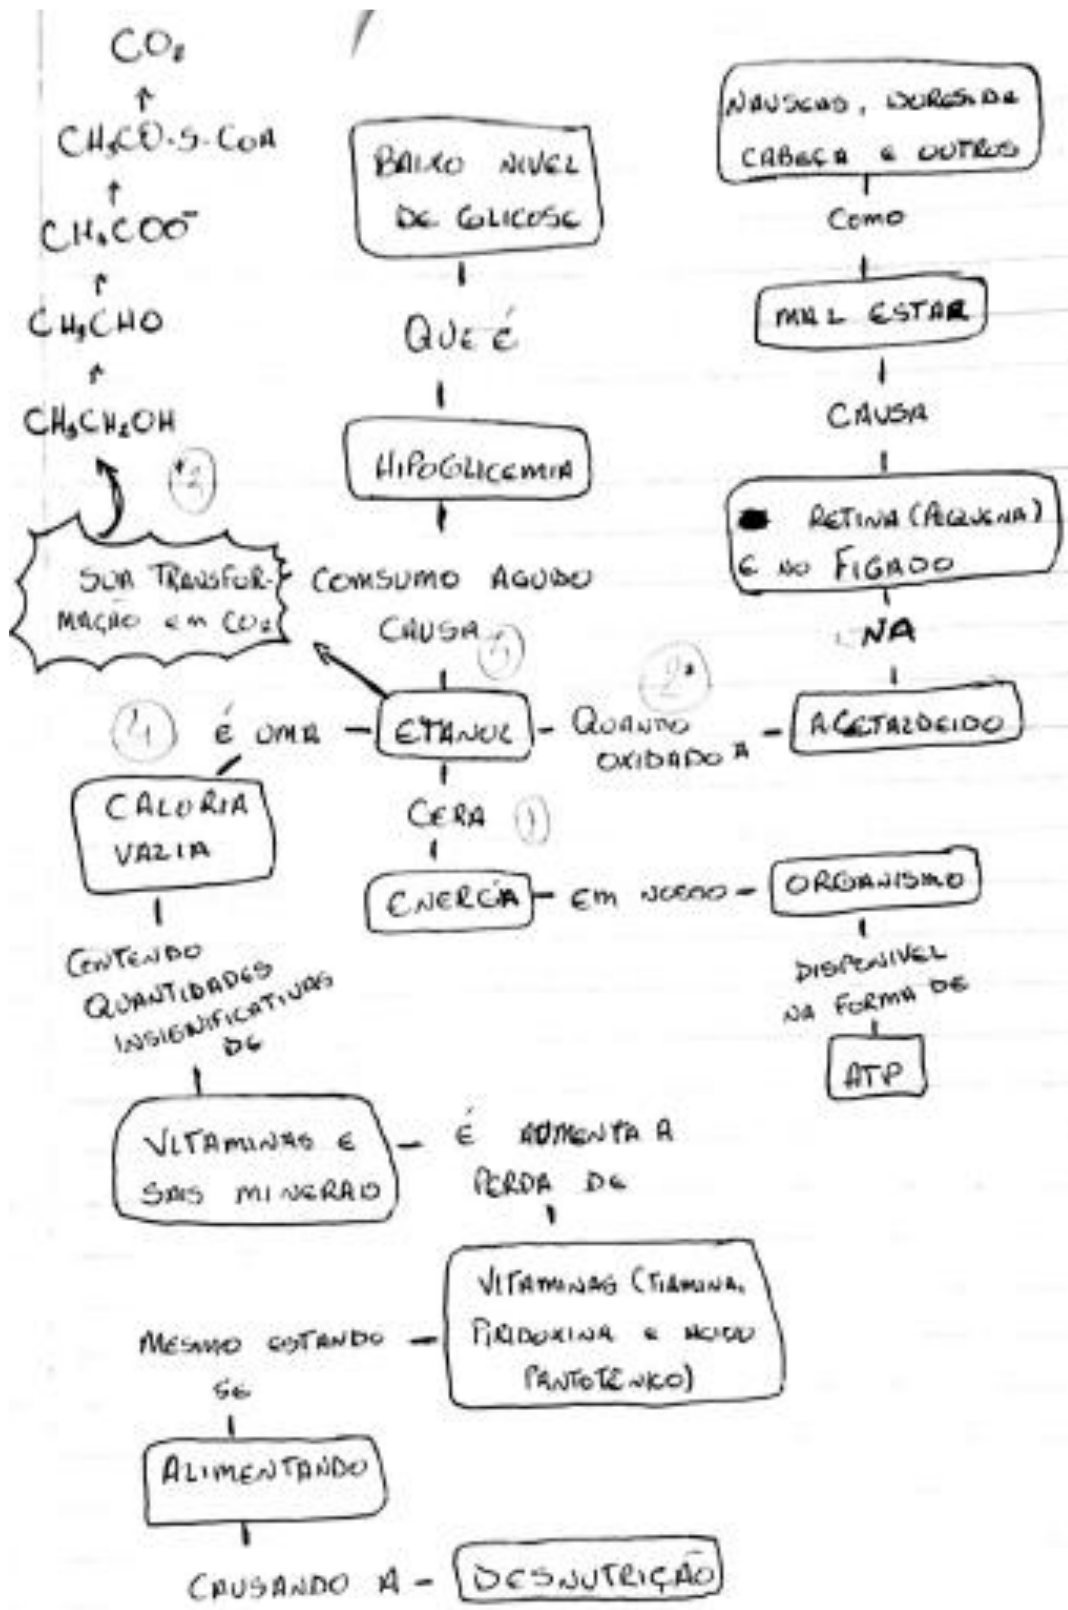 CO₂
↑
CH₃CO-S-CoA
↑
CH₃COO⁻
↑
CH₃CHO
↑
CH₃CH₂OH
*2
SUA TRANSFOR-
MAÇÃO em CO₂
BAIXO NIVEL
DE GLICOSE
QUE É
HIPOGLICEMIA
COMSUMO AGUDO
CAUSA
5
NAUSEAS, DORES DE
CABEÇA E OUTROS
COMO
MAL ESTAR
CAUSA
RETINA (PEQUENA)
E NO FIGADO
NA
4
É UMA
ETANOL
QUANTO
OXIDADO A
2*
ACETALDEIDO
CALORIA
VAZIA
GERA
1
ENERGIA
EM NOSSO
ORGANISMO
DISPONIVEL
NA FORMA DE
ATP
CONTENDO
QUANTIDADES
INSIGNIFICATIVAS
DE
VITAMINAS E
SAIS MINERAIS
É AUMENTA A
PERDA DE
VITAMINAS (TIAMINA,
PIRIDOXINA E ACIDO
PANTOTÊNICO)
MESMO ESTANDO
SE
ALIMENTANDO
CAUSANDO A
DESNUTRIÇÃO